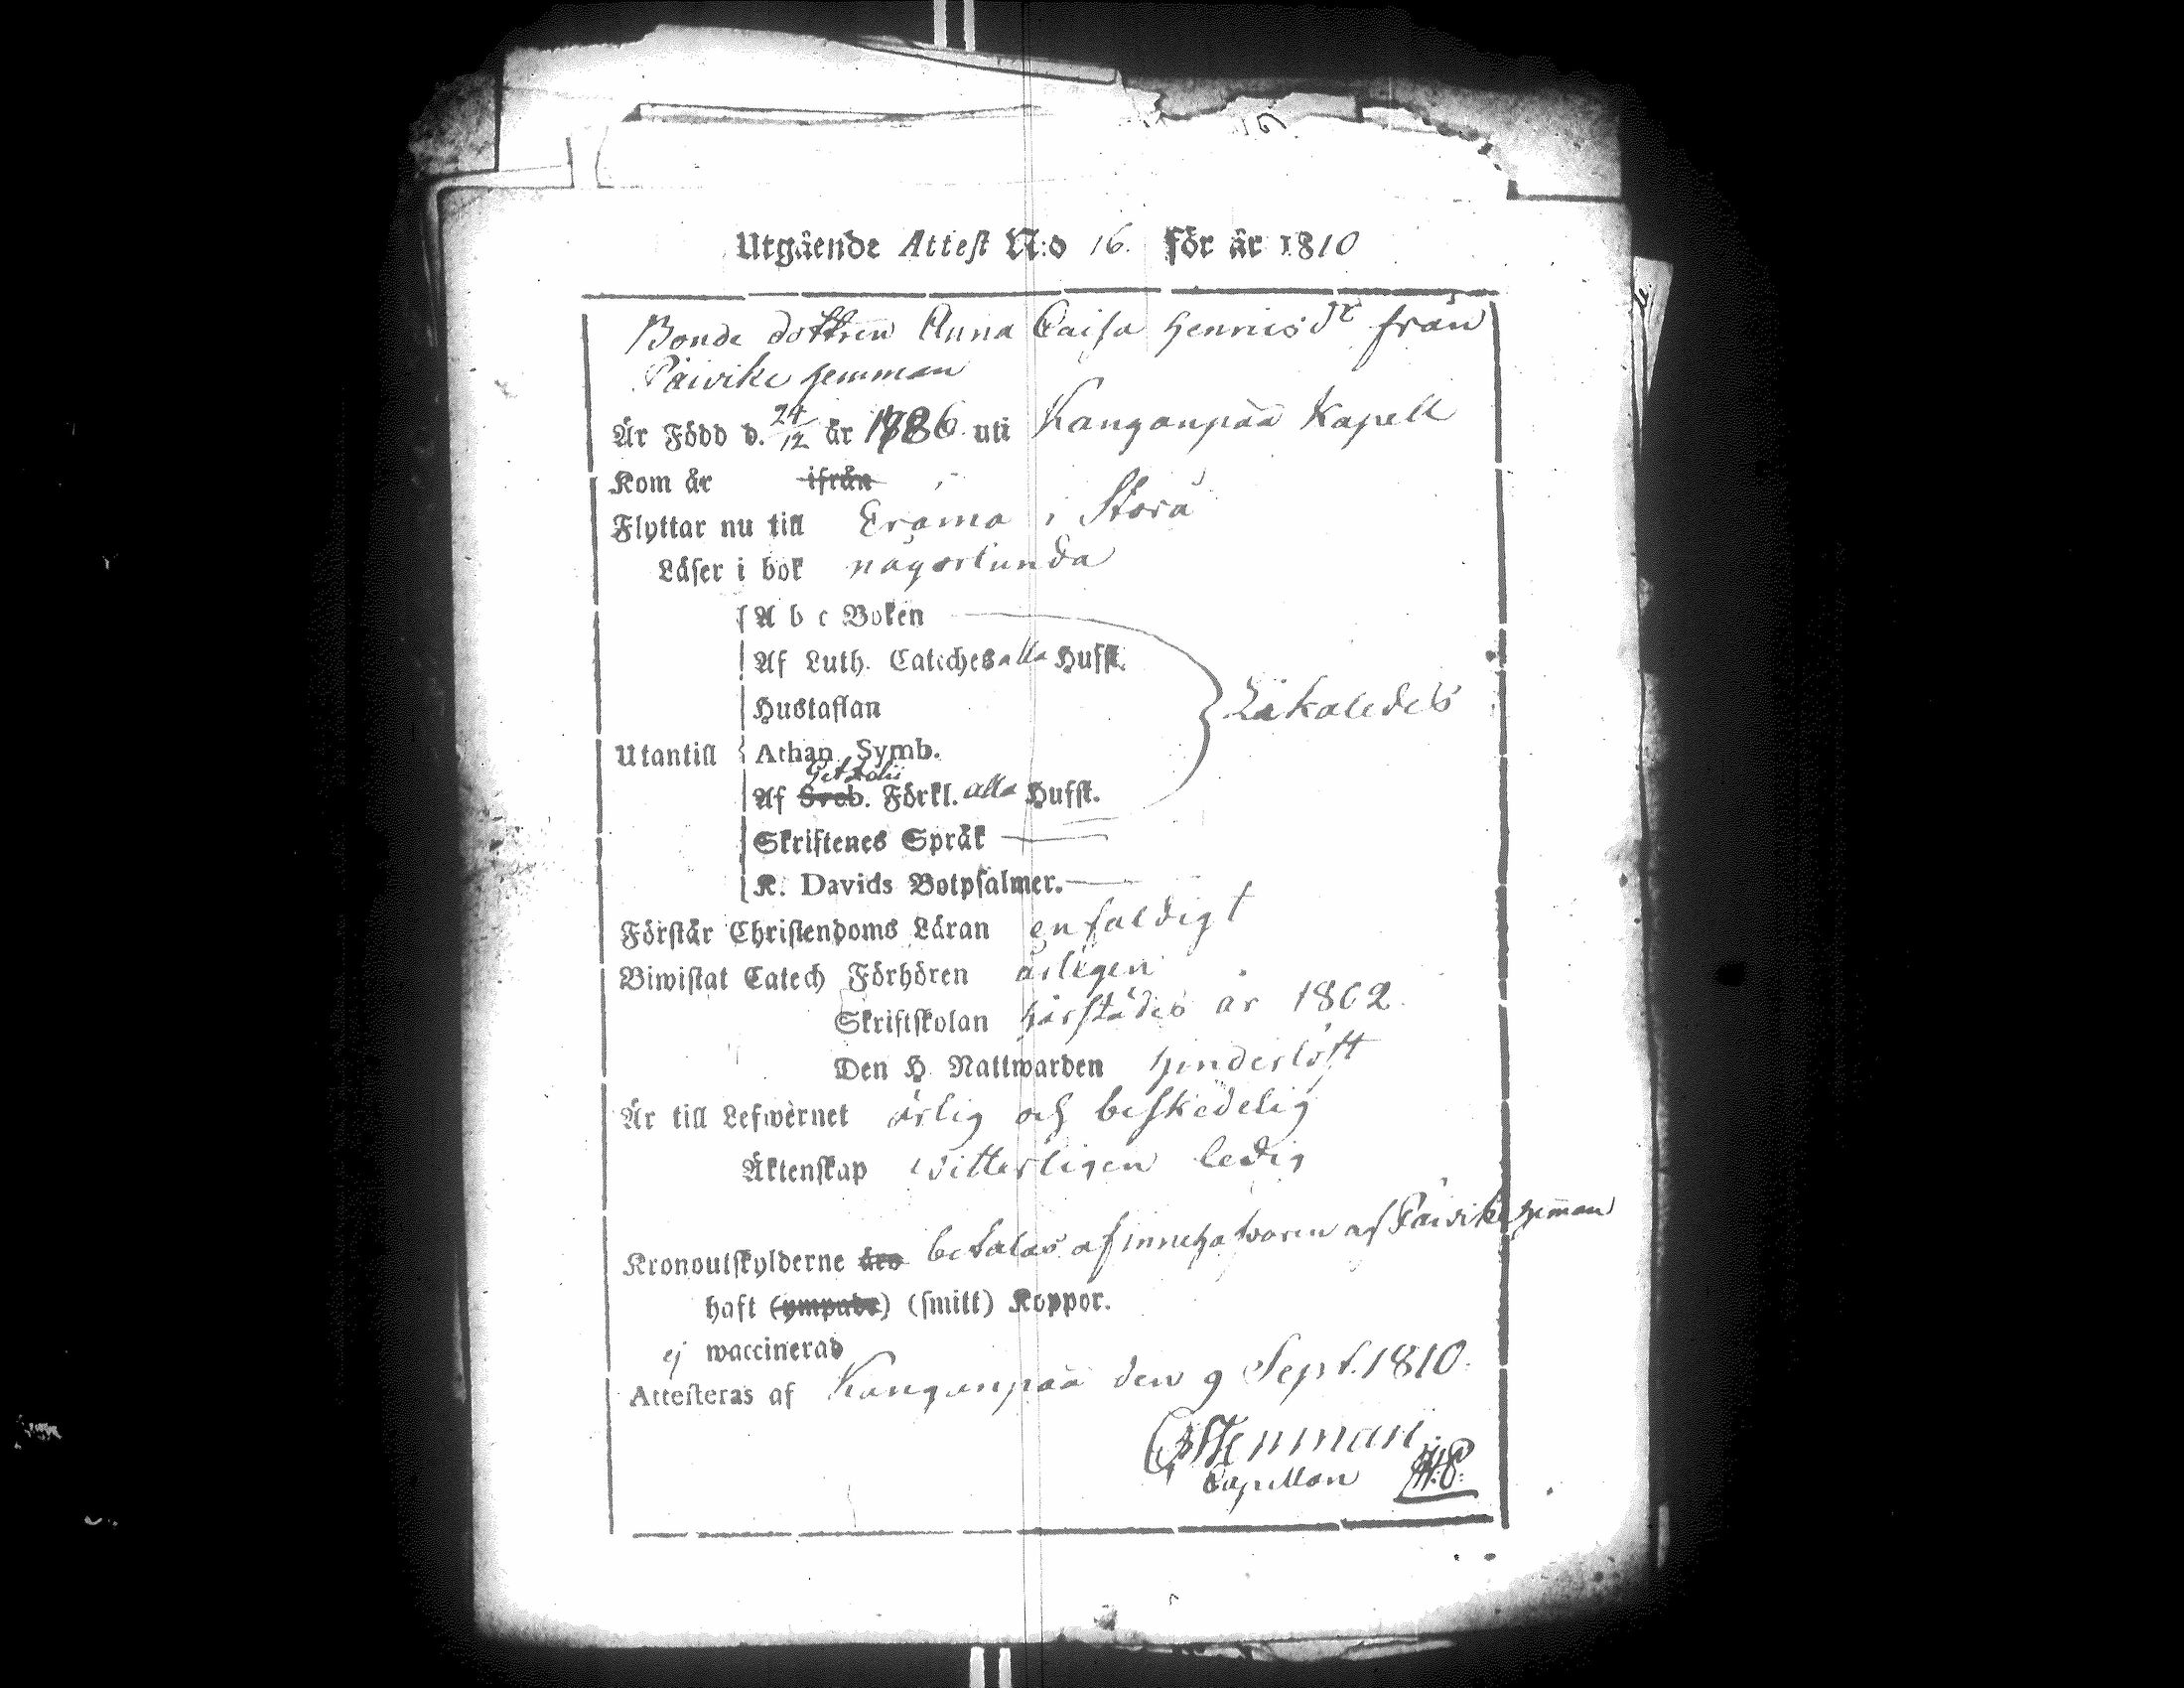 Utgående Attest N:o 16. för år 1810
Bonde dottren Anna Caisa Henricsdr från
Päivike hemman
Är Född d. 24/12 år 1786 uti Kanganpää Kapell
Kom år ifrån
Flyttar nu till Eräma i Storå
Läser i bok någorlunda
A b c Boken
Af Luth. Cateches alla Hufst.
Hustaflan
Likaledes
Utantill Athan Symb.
Af Sveb. Förkl. alla Hufst.
Skriftenes Språk
K. Davids Botpsalmer.
Förstår Christendoms Läran enfaldigt
Biwistat Catech Förhören årligen
Skriftskolan härstädes år 1802
Den H Nattwarden hinderlöst
Är till Lefwernet ärlig och beskedelig
Äktenskap witterligen ledig
Kronoutskylderne äro betalas af innehafwaren af Päivike hemman
haft (ympade) (smitt) Koppor.
ej waccinerad
Attesteras af Kanganpää den 9 Sept. 1810.
Capellan